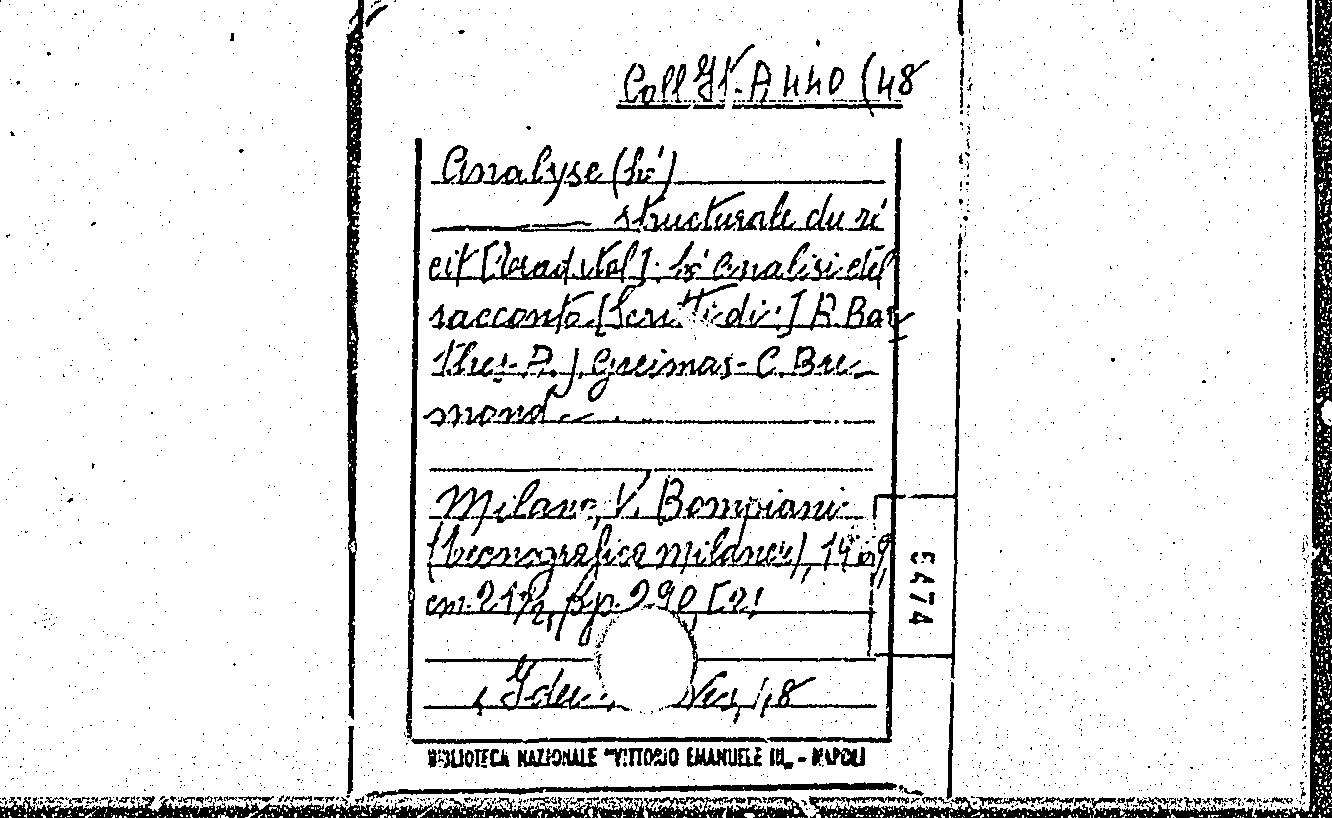 Coll. It. A 440 (48
Analyse (L')
structurale du ré
cit [Trad. ital.]. L'analisi del
racconto [Scritti di:] R. Bar
thes - A. J. Greimas - C. Bre-
mond
Milano, V. Bompiani
(Tecnografica milanese), 1969,
cm. 21½, pp. 290 [2]
8,
BIBLIOTECA NAZIONALE "VITTORIO EMANUELE III„ - NAPOLI
6474